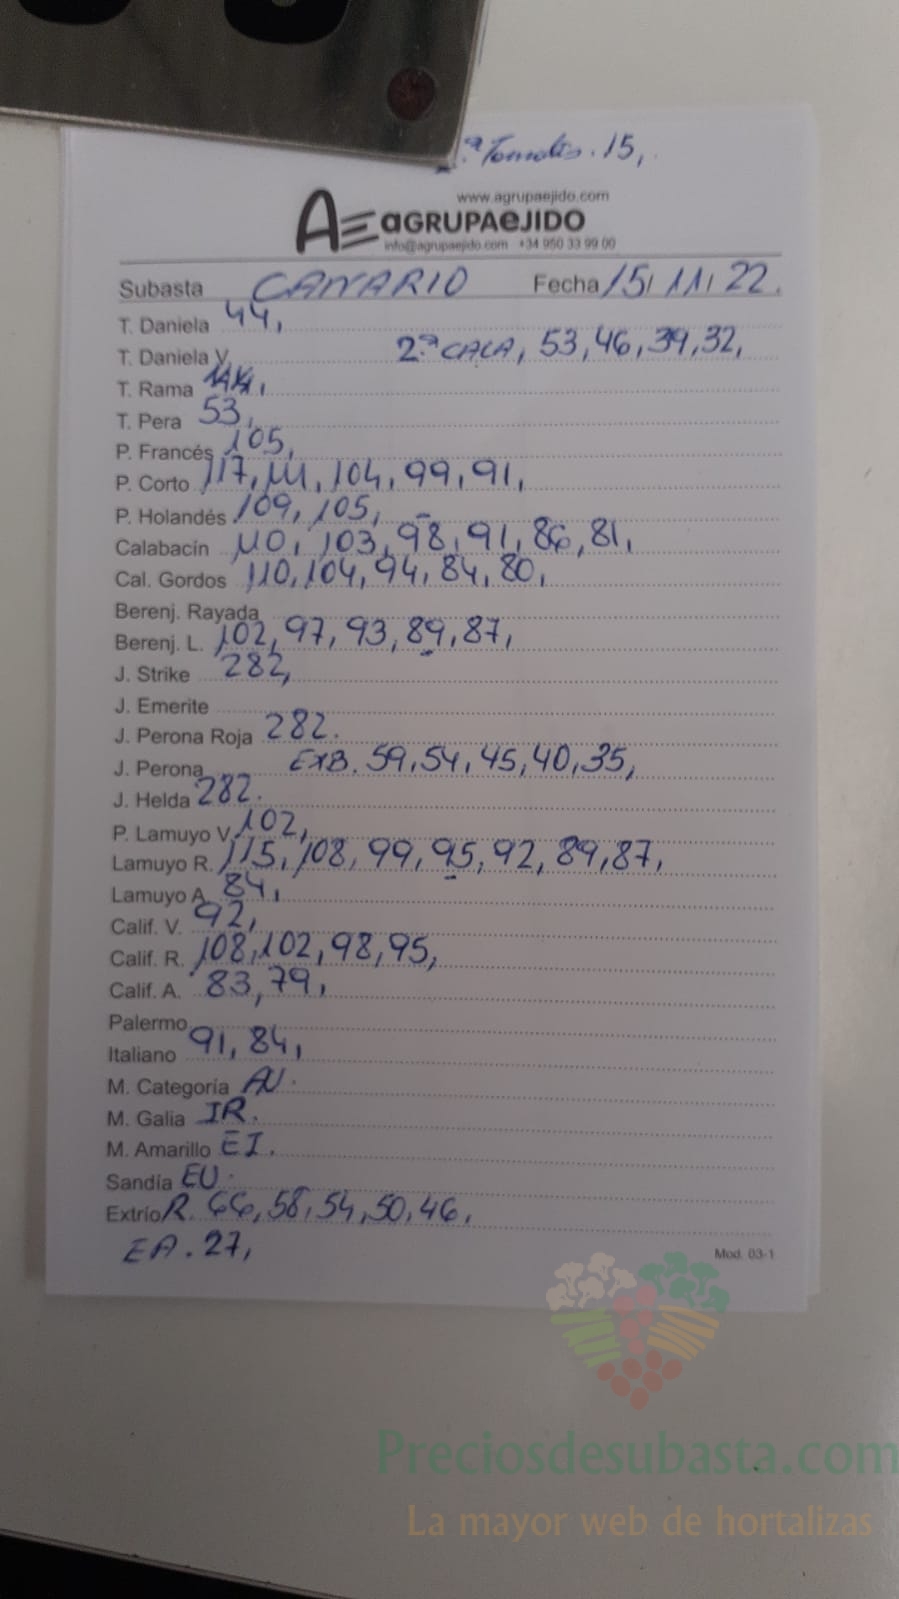 ª Tomates. 15,
www.agrupaejido.com
AGRUPAEJIDO
info@agrupaejido.com +34 950 33 99 00
Subasta CANARIO Fecha 15/11/22.
T. Daniela 44,
T. Daniela V. 2.ª CALA, 53, 46, 39, 32,
T. Rama
T. Pera 53,
P. Francés 105,
P. Corto 117, 111, 104, 99, 91,
P. Holandés 109, 105,
Calabacín 110, 103, 98, 91, 86, 81,
Cal. Gordos 110, 104, 94, 84, 80,
Berenj. Rayada
Berenj. L. 102, 97, 93, 89, 87,
J. Strike 282,
J. Emerite
J. Perona Roja 282.
J. Perona EXB. 59, 54, 45, 40, 35,
J. Helda 282.
P. Lamuyo V. 102,
Lamuyo R. 115, 108, 99, 95, 92, 89, 87,
Lamuyo A. 84,
Calif. V. 92,
Calif. R. 108, 102, 98, 95,
Calif. A. 83, 79,
Palermo
Italiano 91, 84,
M. Categoría AV.
M. Galia IR.
M. Amarillo EI.
Sandía EU.
Extrío R. 66, 58, 54, 50, 46,
EA. 27,
Mod. 03-1
Preciosdesubasta.com
La mayor web de hortalizas